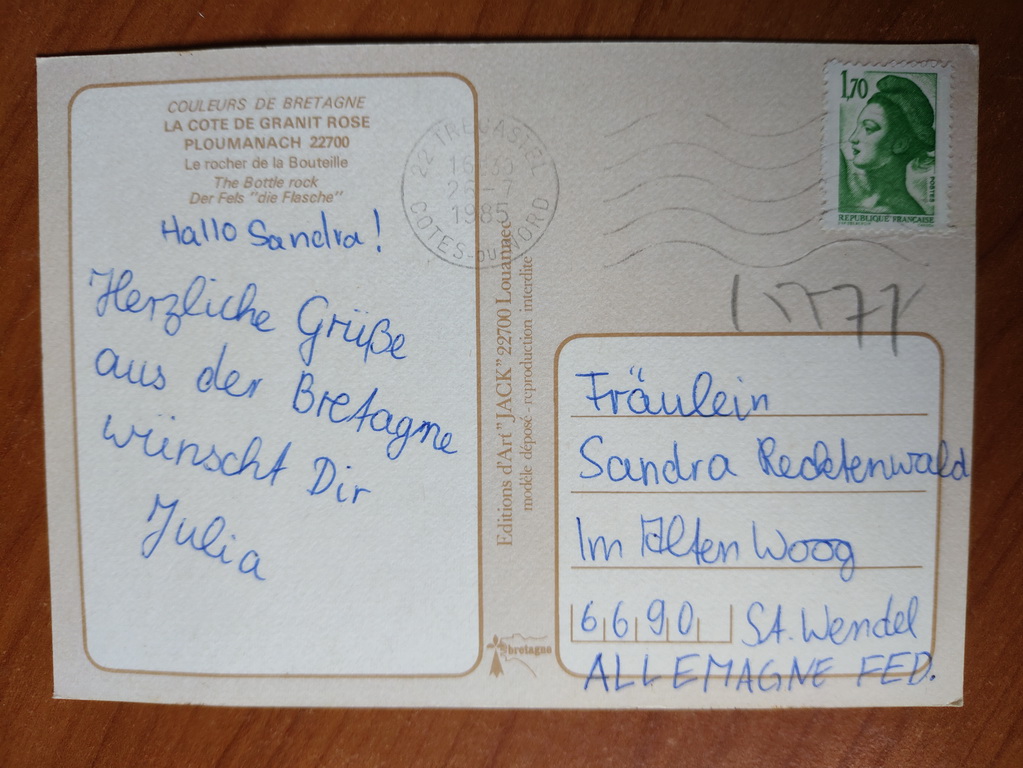 COULEURS DE BRETAGNE
LA COTE DE GRANIT ROSE
PLOUMANACH 22700
Le rocher de la Bouteille
The Bottle rock
Der Fels "die Flasche"
Hallo Sandra!
Herzliche Grüße
aus der Bretagne
wünscht Dir
Julia
22 TREGASTEL
1985
COTES-DU-NORD
Editions d'Art "JACK" 22700 Louannec
modèle déposé - reproduction interdite
bretagne
1,70
POSTES
REPUBLIQUE FRANÇAISE
Fräulein
Sandra Recktenwald
Im Alten Woog
6690 St. Wendel
ALLEMAGNE FED.